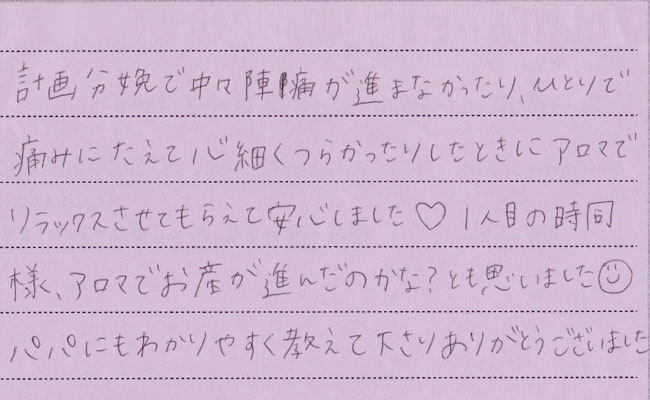 計画分娩で中々陣痛が進まなかったり、ひとりで
痛みにたえて心細くつらかったりしたときにアロマで
リラックスさせてもらえて安心しました♡ 1人目の時同
様、アロマでお産が進んだのかな?とも思いました☺
パパにもわかりやすく教えて下さりありがとうございました